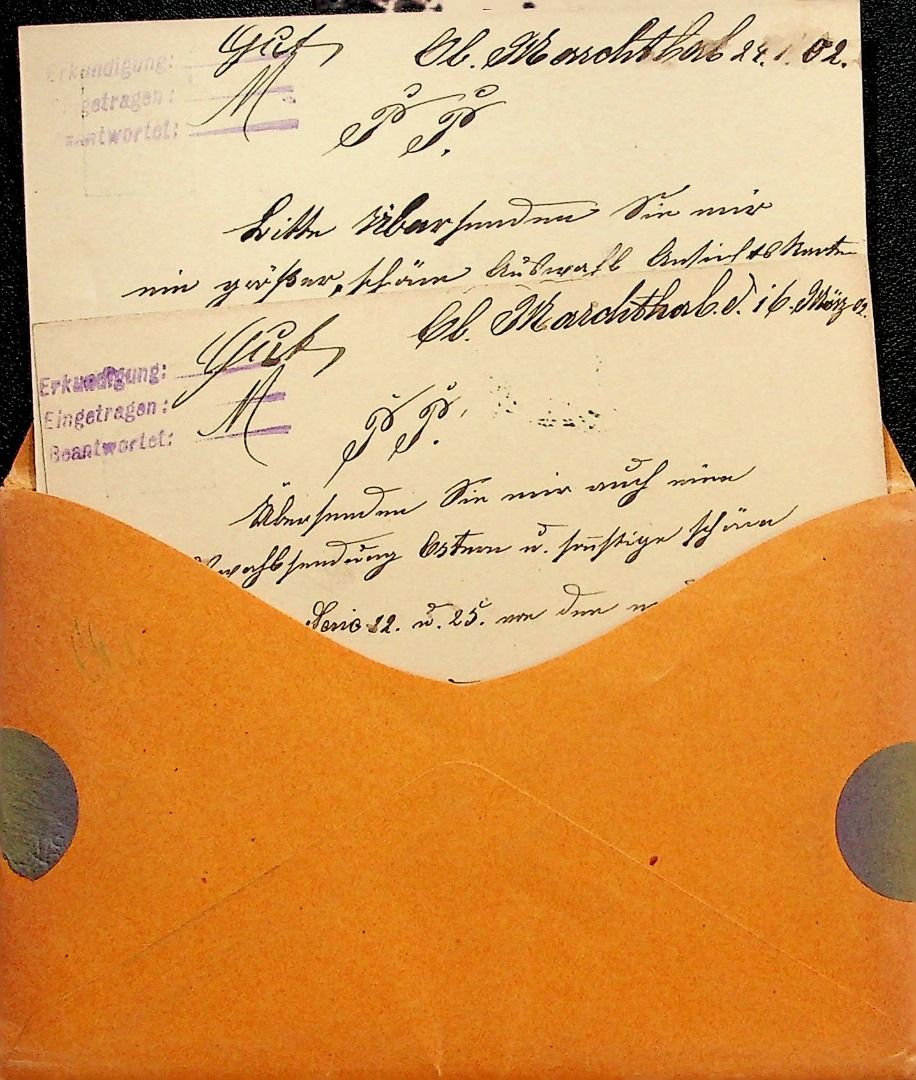 Erkundigung: Gut,
Eingetragen: M
Beantwortet:
Ob. Marchthal 24. 1. 02.
P. P.
Bitte Übersenden Sie mir
ein größer, schöne Auswahl Ansichtskarten
Ob. Marchthal. d. 16. März 02.
Erkundigung: Gut,
Eingetragen: M
Beantwortet:
P. P.
Übersenden Sie mir auch eine
Auswahlsendung Ostern u. sonstige schöne
Serie 22. u. 25. von den